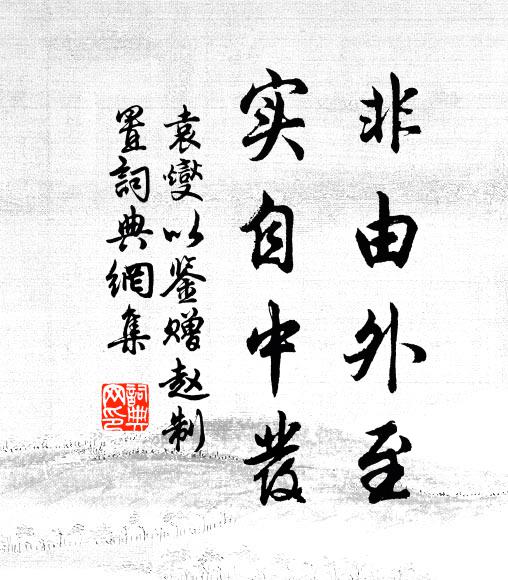 非由外至
实自中發
袁燮以鉴赠赵制
置詞典網集
詞典
网印